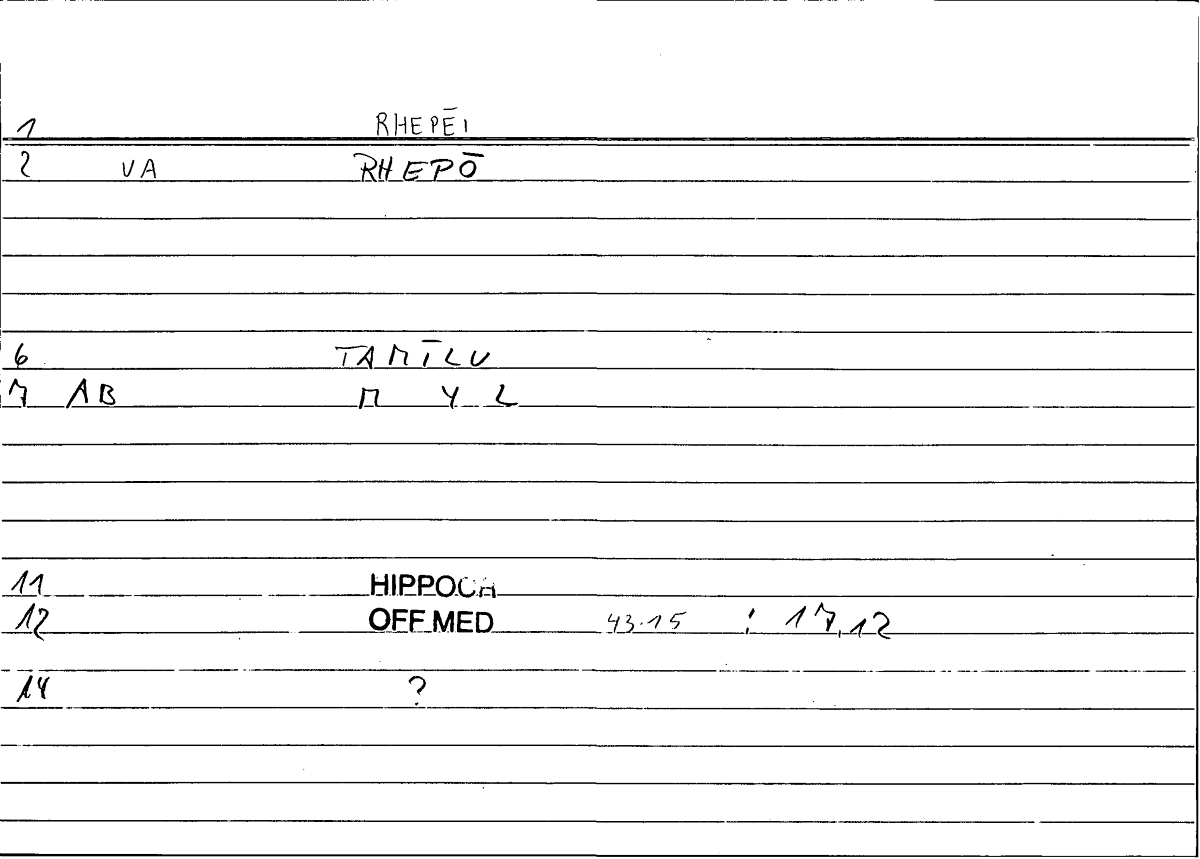 1 RHEPĒI
2 VA RHEPŌ
6 TAMĪLU
7 AB M Y L
11 HIPPOCR
12 OFF MED 43.15 : 17,12
14 ?